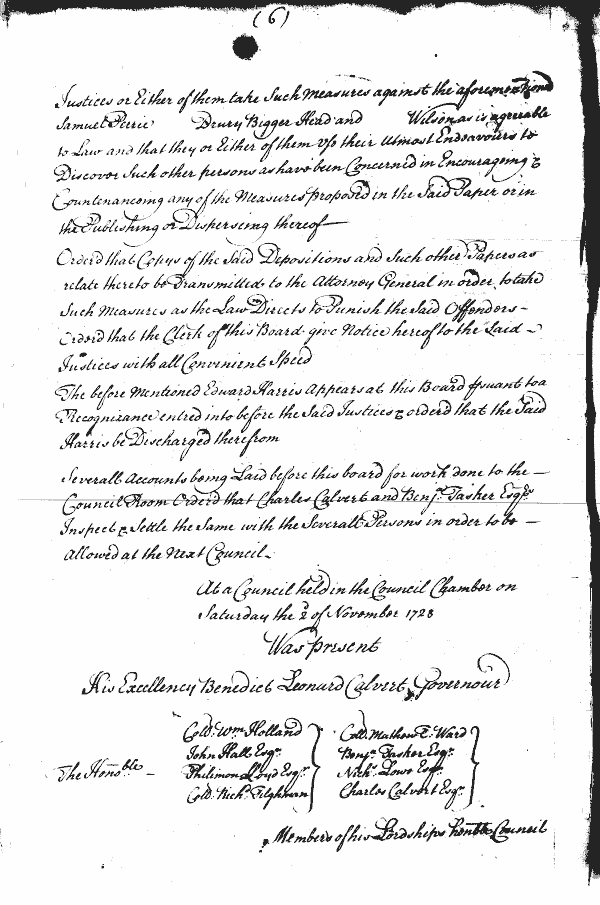 (6)
Justices or Either of them take Such Measures against the aforementiond
Samuel Perrie Drury Bigger Head and Wilson as is agreeable
to Law and that they or Either of them Use their Utmost Endeavours to
Discover Such other persons as have been Concerned in Encourageing &
Countenanceing any of the Measures proposed in the Said Paper or in
the Publishing or Disperseing thereof
Orderd that Copys of the Said Depositions and Such other Papers as
relate thereto be Transmitted to the Attorney General in order to take
Such Measures as the Law Directs to Punish the Said Offenders -
Orderd that the Clerk of this Board give Notice hereof to the Said -
Justices with all Convenient Speed
The before Mentioned Edward Harris Appears at this Board psuant to a
Recognizance entred into before the Said Justices & orderd that the Said
Harris be Discharged therefrom
Severall Accounts being Laid before this board for work done to the -
Council Room Orderd that Charles Calvert and Benja. Tasker Esqrs.
Inspect & Settle the Same with the Severall Persons in order to be -
Allowed at the Next Council -
At a Council held in the Council Chamber on
Saturday the 2d of November 1728
Was present
His Excellency Benedict Leonard Calvert, Governour
The Honoble -
Coll. Wm. Holland
John Hall Esqr.
Philimon Lloyd Esqr.
Coll. Richd. Tilghman
Coll. Mathew T. Ward
Benja. Tasker Esqr.
Nichs. Lowe Esqr.
Charles Calvert Esqr.
Members of his Lordships honble Council